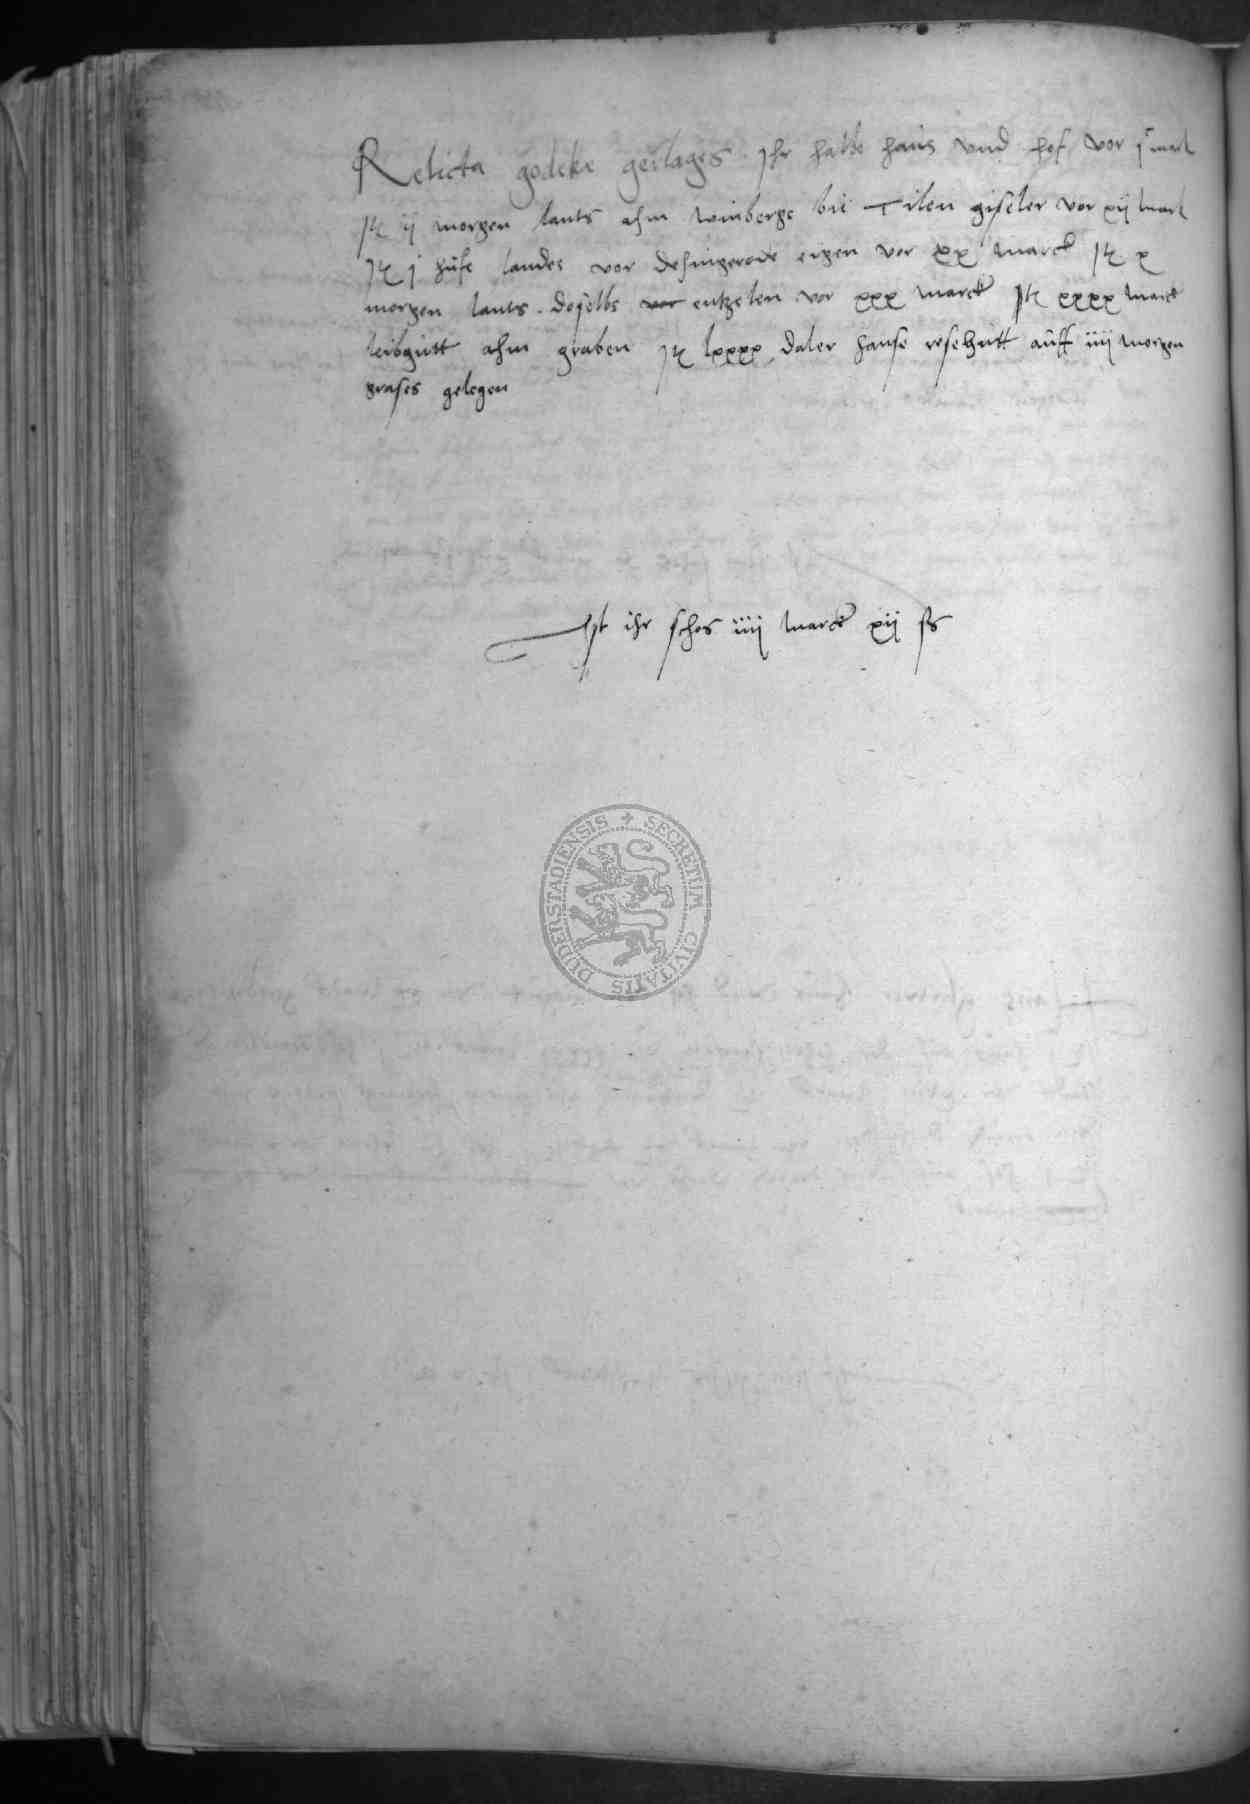 Relicta godeke gerlages Ihr halbe haus vnd hof vor mark
It ij morgen lants ahm winberge bie Tilen giseler vor xij mark
It j hufe landes vor desingerode eigen vor xx marck It x
morgen lants doselbs vor entzelen vor xxx marck It xxxx marck
leibgutt ahm graben It lxxxx daler hanse resehutt auff iiij morgen
grases gelegen
Ist ihr schos iiij marck xij ß
SECRETUM CIVITATIS DUDERSTADIENSIS